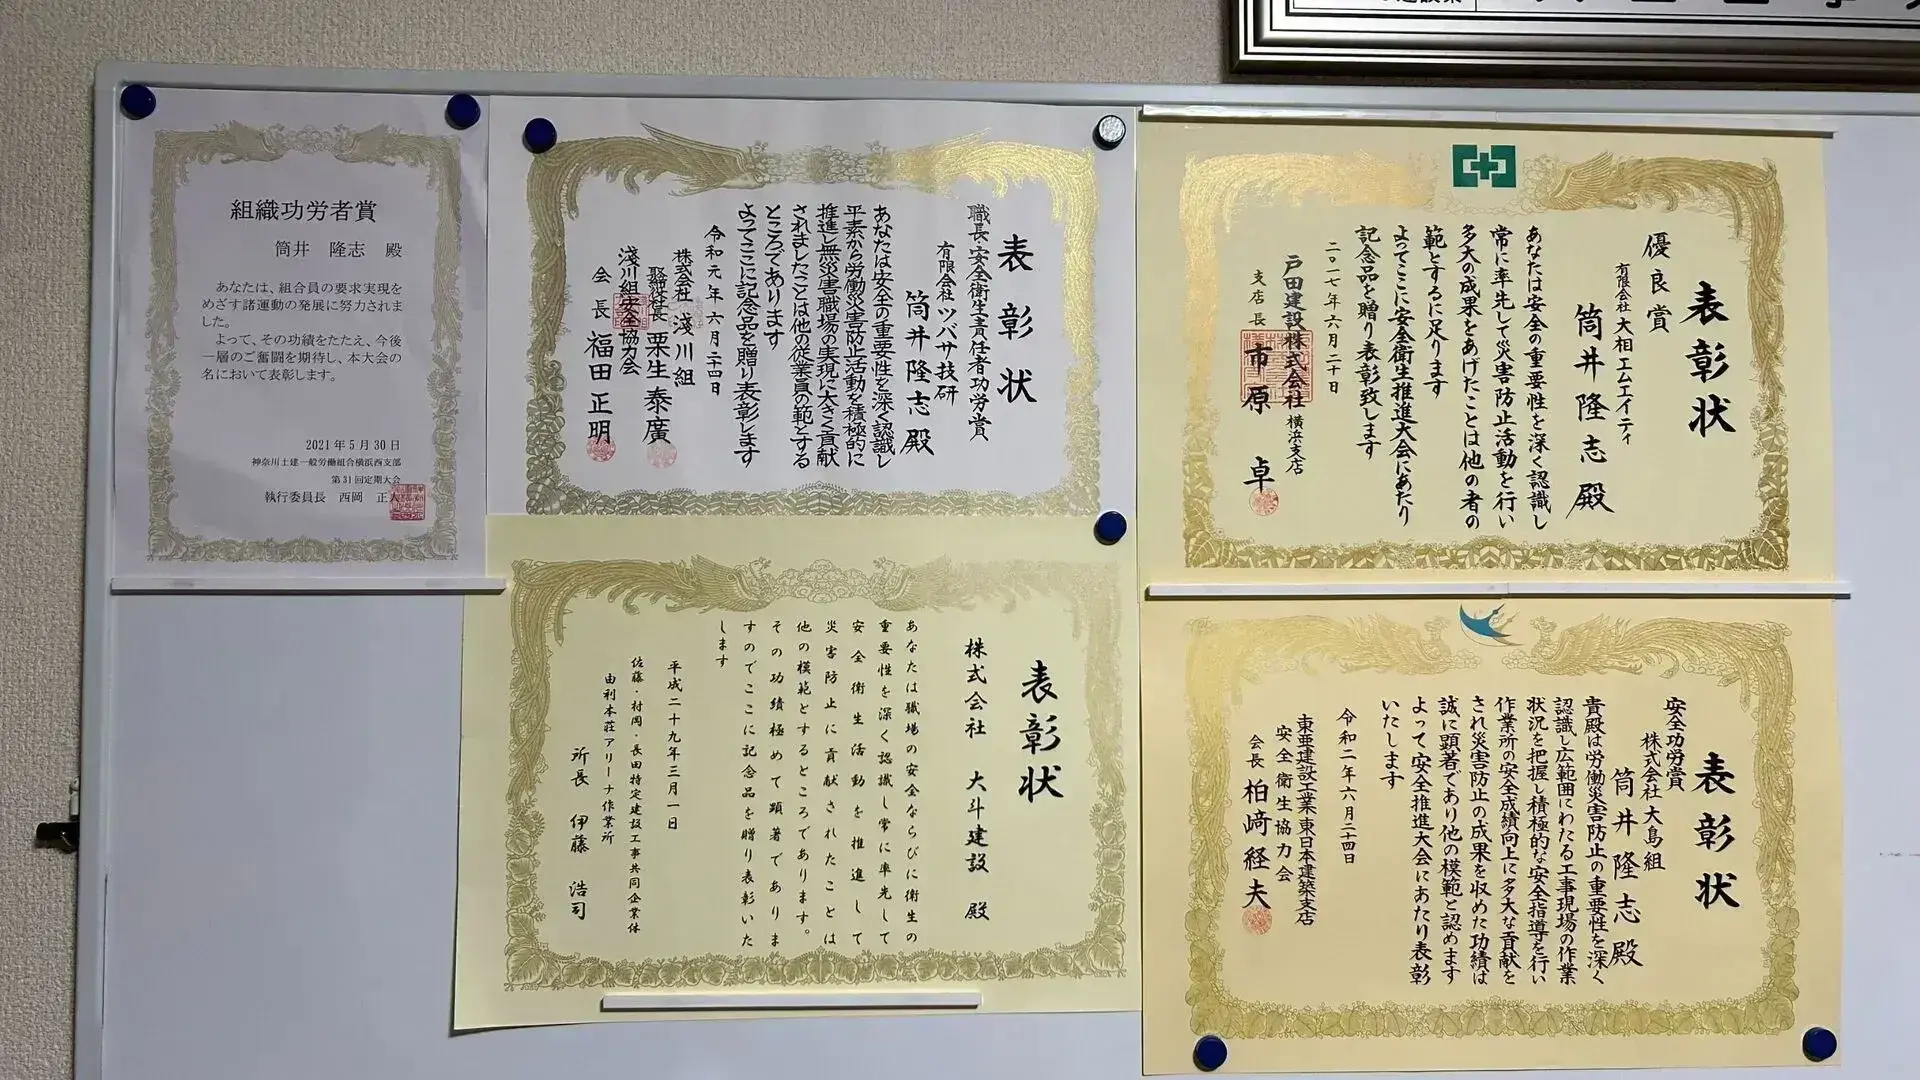 組織功労者賞
筒井 隆志 殿
あなたは、組合員の要求実現を
めざす諸運動の発展に努力されま
した。
よって、その功績をたたえ、今後
一層のご奮闘を期待し、本大会の
名において表彰します。
2021年5月30日
神奈川土建一般労働組合横浜西支部
第31回定期大会
執行委員長 西岡 正人
表彰状
職長・安全衛生責任者功労賞
有限会社 ツバサ技研
筒井隆志 殿
あなたは安全の重要性を深く認識し
平素から労働災害防止活動を積極的に
推進し無災害職場の実現に大きく貢献
されましたことは他の従業員の範とする
ところであります
よってここに記念品を贈り表彰します
令和元年六月二十四日
株式会社 淺川組
栗生泰廣
淺川組安全協力会
会長 福田正明
表彰状
優良賞
有限会社 大相エムエイティ
筒井隆志 殿
あなたは安全の重要性を深く認識し
常に率先して災害防止活動を行い
多大の成果をあげたことは他の者の
範とするに足ります
よってここに安全衛生推進大会にあたり
記念品を贈り表彰致します
二〇一七年六月二十日
戸田建設株式会社 横浜支店
支店長 市原 卓
表彰状
株式会社 大斗建設 殿
あなたは職場の安全ならびに衛生の
重要性を深く認識し常に率先して
安全衛生活動を推進して
災害防止に貢献されたことは
他の模範とするところであります。
その功績極めて顕著でありま
すのでここに記念品を贈り表彰いた
します
平成二十九年三月一日
佐藤・村岡・長田特定建設工事共同企業体
由利本荘アリーナ作業所
所長 伊藤 浩司
表彰状
安全功労賞
株式会社 大島組
筒井隆志 殿
貴殿は労働災害防止の重要性を深く
認識し広範囲にわたる工事現場の作業
状況を把握し積極的な安全指導を行い
作業所の安全成績向上に多大な貢献を
され災害防止の成果を収めた功績は
誠に顕著であり他の模範と認めます
よって安全推進大会にあたり表彰
いたします
令和二年六月二十四日
東亜建設工業 東日本建築支店
安全衛生協力会
会長 柏﨑経夫